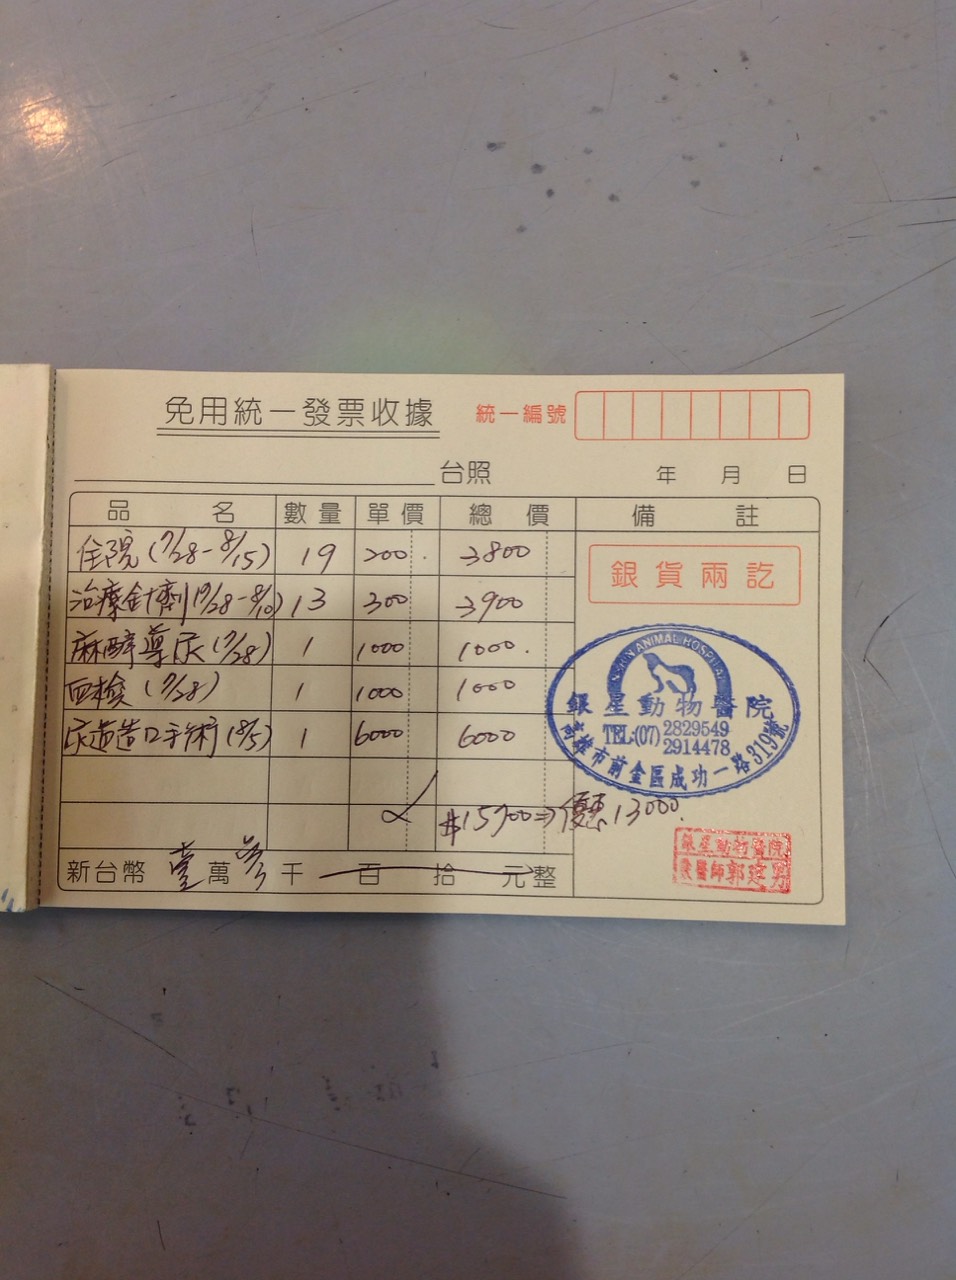 免用統一發票收據 統一編號
台照 年 月 日
品名 數量 單價 總價 備註
住院(7/28-8/15) 19 200. 3800
治療針劑(7/28-8/10) 13 300 3900
麻醉導尿(7/28) 1 1000 1000.
血檢(7/28) 1 1000 1000
尿道造口手術(8/5) 1 6000 6000
$15700⇒優惠13000.
新台幣壹萬參千百拾元整
銀貨兩訖
ANIMAL HOSPITAL
銀星動物醫院
TEL:(07)2829549
2914478
高雄市前金區成功一路319號
銀星動物醫院
獸醫師郭建男